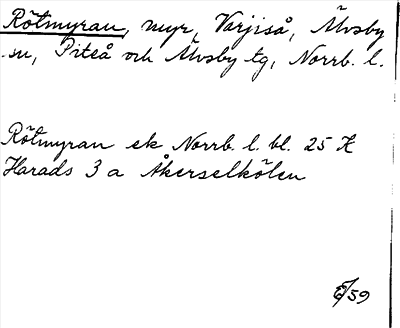 Rötmyran, myr, Varjiså, Älvsby
sn, Piteå och Älvsby tg, Norrb. l.
Rötmyran ek Norrb. l. bl. 25 K
Harads 3 a Åkerselkölen
/59